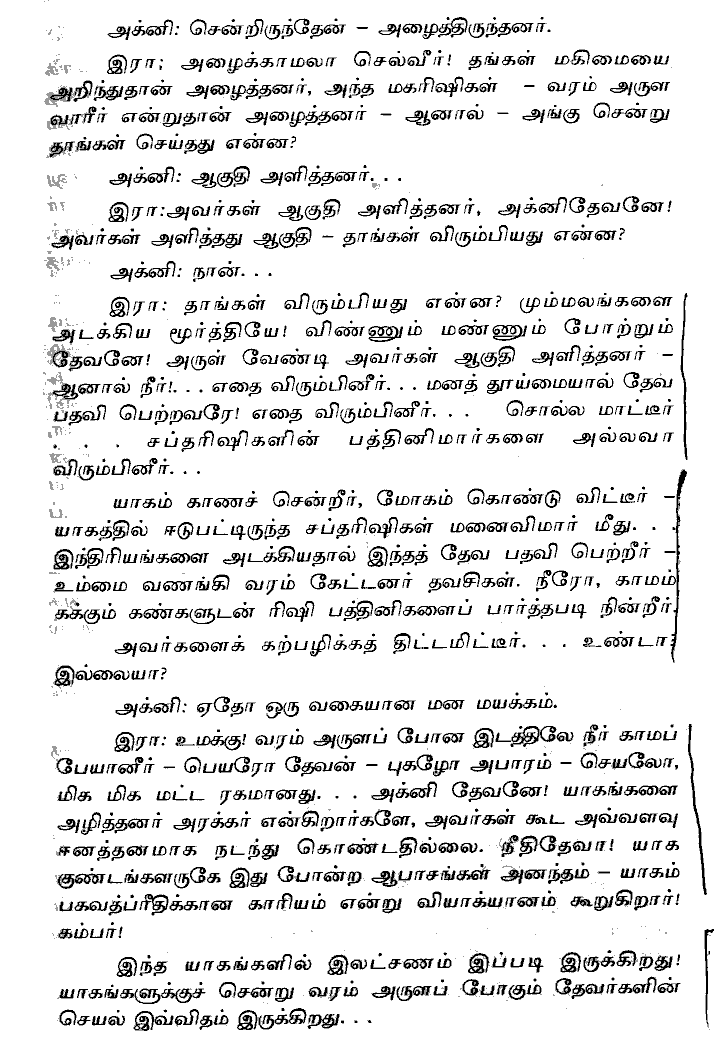 அக்னி: சென்றிருந்தேன் – அழைத்திருந்தனர்.
இரா; அழைக்காமலா செல்வீர்! தங்கள் மகிமையை
அறிந்துதான் அழைத்தனர், அந்த மகரிஷிகள் – வரம் அருள
வாரீர் என்றுதான் அழைத்தனர் – ஆனால் – அங்கு சென்று
தாங்கள் செய்தது என்ன?
அக்னி: ஆகுதி அளித்தனர். . .
இரா:அவர்கள் ஆகுதி அளித்தனர், அக்னிதேவனே!
அவர்கள் அளித்தது ஆகுதி – தாங்கள் விரும்பியது என்ன?
அக்னி: நான். . .
இரா: தாங்கள் விரும்பியது என்ன? மும்மலங்களை
அடக்கிய மூர்த்தியே! விண்ணும் மண்ணும் போற்றும்
தேவனே! அருள் வேண்டி அவர்கள் ஆகுதி அளித்தனர் –
ஆனால் நீர்!. . . எதை விரும்பினீர். . . மனத் தூய்மையால் தேவ
பதவி பெற்றவரே! எதை விரும்பினீர். . . சொல்ல மாட்டீர்
. . . சப்தரிஷிகளின் பத்தினிமார்களை அல்லவா
விரும்பினீர். . .
யாகம் காணச் சென்றீர், மோகம் கொண்டு விட்டீர் –
யாகத்தில் ஈடுபட்டிருந்த சப்தரிஷிகள் மனைவிமார் மீது. . .
இந்திரியங்களை அடக்கியதால் இந்தத் தேவ பதவி பெற்றீர் –
உம்மை வணங்கி வரம் கேட்டனர் தவசிகள். நீரோ, காமம்
கக்கும் கண்களுடன் ரிஷி பத்தினிகளைப் பார்த்தபடி நின்றீர்.
அவர்களைக் கற்பழிக்கத் திட்டமிட்டீர். . . உண்டா?
இல்லையா?
அக்னி: ஏதோ ஒரு வகையான மன மயக்கம்.
இரா: உமக்கு! வரம் அருளப் போன இடத்திலே நீர் காமப்
பேயானீர் – பெயரோ தேவன் – புகழோ அபாரம் – செயலோ,
மிக மிக மட்ட ரகமானது. . . அக்னி தேவனே! யாகங்களை
அழித்தனர் அரக்கர் என்கிறார்களே, அவர்கள் கூட அவ்வளவு
ஈனத்தனமாக நடந்து கொண்டதில்லை. நீதிதேவா! யாக
குண்டங்களருகே இது போன்ற ஆபாசங்கள் அனந்தம் – யாகம்
பகவத்ப்ரீதிக்கான காரியம் என்று வியாக்யானம் கூறுகிறார்!
கம்பர்!
இந்த யாகங்களில் இலட்சணம் இப்படி இருக்கிறது!
யாகங்களுக்குச் சென்று வரம் அருளப் போகும் தேவர்களின்
செயல் இவ்விதம் இருக்கிறது. . .